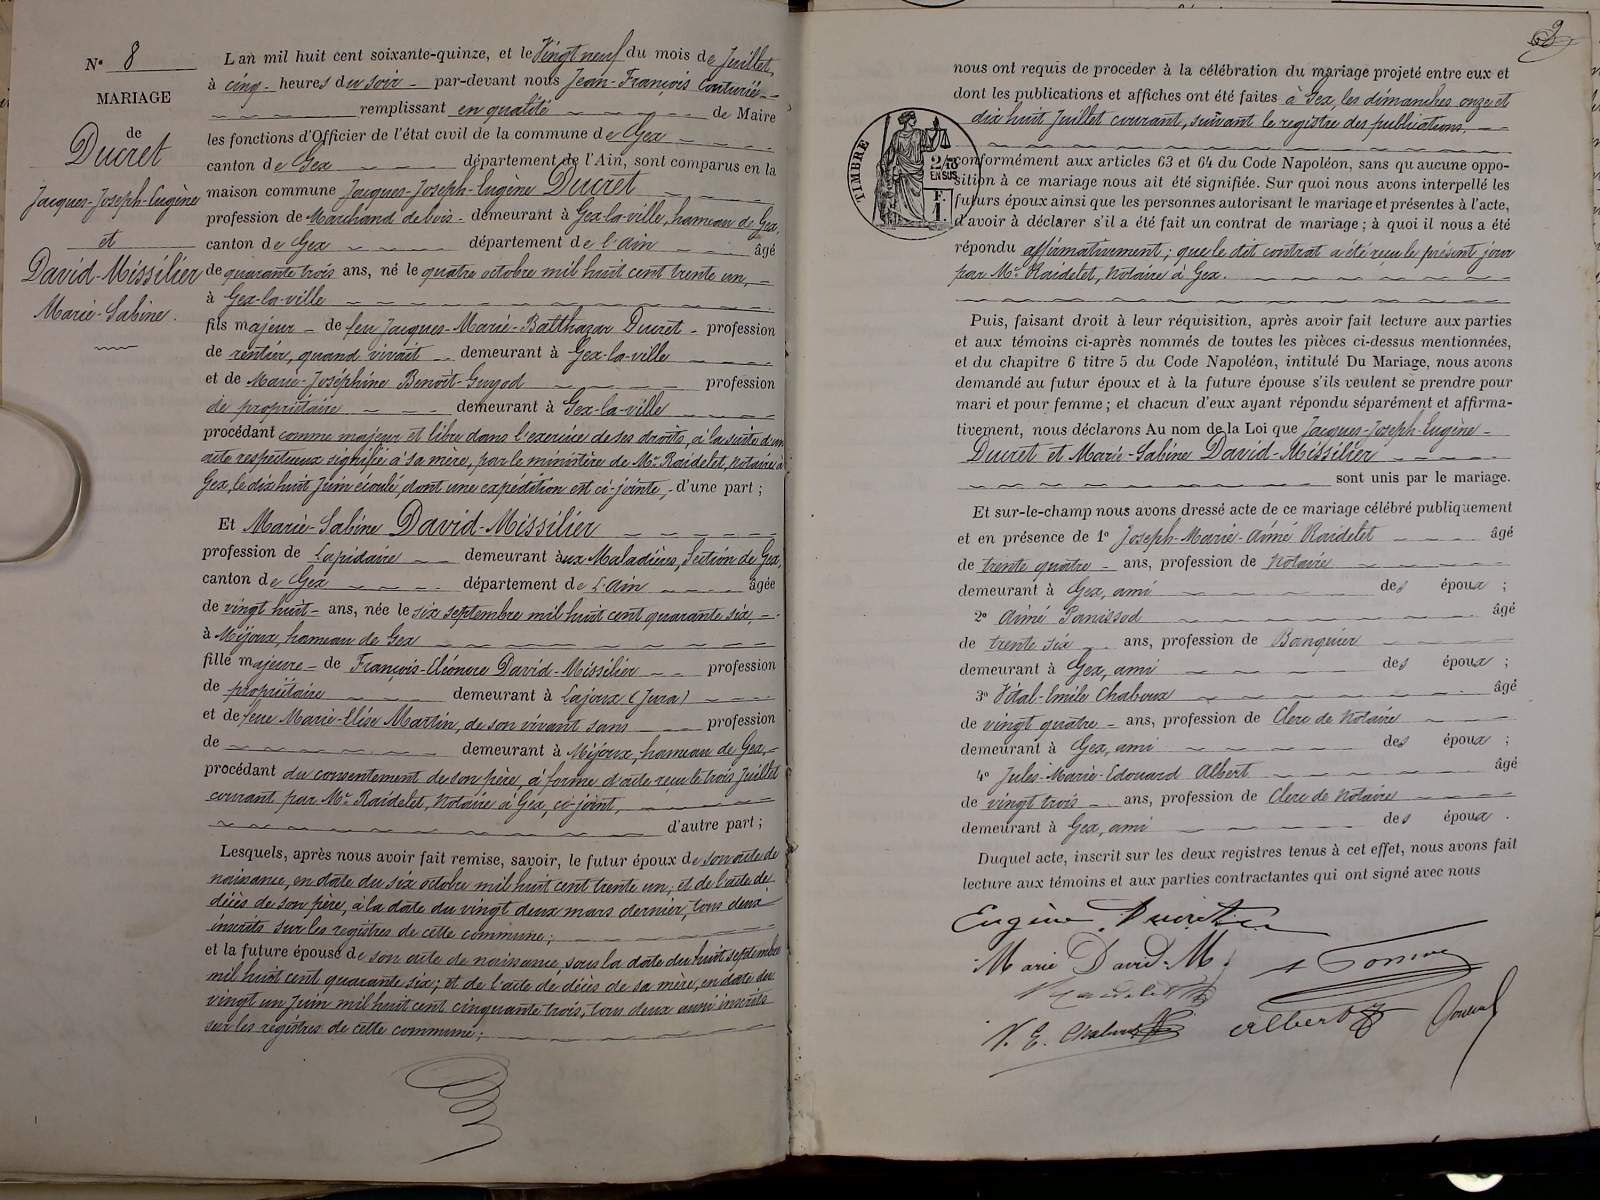 N° 8
MARIAGE
de
Ducret
Jacques-Joseph-Eugène
et
David-Missilier
Marie-Sabine.
L an mil huit cent soixante-quinze, et le Vingt neuf du mois de Juillet,
à cinq heures du soir par-devant nous Jean-François Couturié
remplissant en qualité de Maire
les fonctions d'Officier de l'état civil de la commune de Gex
canton de Gex département de l'Ain, sont comparus en la
maison commune Jacques-Joseph-Eugène Ducret
profession de Marchand de bois demeurant à Gex-la-ville, hameau de Gex,
canton de Gex département de l'Ain âgé
de quarante trois ans, né le quatre octobre mil huit cent trente un,
à Gex-la-ville
fils majeur de feu Jacques-Marie-Balthazar Ducret profession
de rentier, quand vivait demeurant à Gex-la-ville
et de Marie-Joséphine Benoît-Guyod profession
de propriétaire demeurant à Gex-la-ville
procédant comme majeur et libre dans l'exercice de ses droits, à la suite d'un
acte respectueux signifié à sa mère, par le ministère de Me Raidelet, Notaire à
Gex, le dix huit Juin écoulé, dont une expédition est ci-jointe, d'une part ;
Et Marie-Sabine David-Missilier
profession de Lapidaire demeurant aux Maladières, Section de Gex,
canton de Gex département de L'Ain âgée
de vingt huit ans, née le six septembre mil huit cent quarante six,
à Mijoux, hameau de Gex
fille majeure de François-Eléonore David-Missilier profession
de propriétaire demeurant à Lajoux (Jura)
et de feue Marie-Elise Martin, de son vivant sans profession
de demeurant à Mijoux, hameau de Gex,
procédant du consentement de son père, à forme d'acte reçu le trois Juillet
courant par Me Raidelet, Notaire à Gex, ci-joint,
d'autre part ;
Lesquels, après nous avoir fait remise, savoir, le futur époux de son acte de
naissance, en date du six octobre mil huit cent trente un; et de l'acte de
décès de son père, à la date du vingt deux mars dernier, tous deux
inscrits sur les registres de cette commune;
et la future épouse de son acte de naissance, sous la date du huit septembre
mil huit cent quarante six; et de l'acte de décès de sa mère, en date du
vingt un Juin mil huit cent cinquante trois, tous deux aussi inscrits
sur les registres de cette commune;
9
nous ont requis de proceder à la célébration du mariage projeté entre eux et
dont les publications et affiches ont été faites à Gex, les dimanches onze et
dix huit Juillet courant, suivant le registre des publications,
TIMBRE
2/10
EN SUS
F.
1
conformément aux articles 63 et 64 du Code Napoléon, sans qu aucune oppo-
sition à ce mariage nous ait été signifiée. Sur quoi nous avons interpellé les
futurs époux ainsi que les personnes autorisant le mariage et présentes à l'acte,
d'avoir à déclarer s'il a été fait un contrat de mariage ; à quoi il nous a été
répondu affirmativement ; que le dit contrat a été reçu le présent jour
par Me Raidelet, Notaire à Gex.
Puis, faisant droit à leur réquisition, après avoir fait lecture aux parties
et aux témoins ci-après nommés de toutes les pièces ci-dessus mentionnées,
et du chapitre 6 titre 5 du Code Napoléon, intitulé Du Mariage, nous avons
demandé au futur époux et à la future épouse s'ils veulent se prendre pour
mari et pour femme ; et chacun d'eux ayant répondu séparément et affirma-
tivement, nous déclarons Au nom de la Loi que Jacques-Joseph-Eugène
Ducret et Marie-Sabine David-Missilier
sont unis par le mariage.
Et sur-le-champ nous avons dressé acte de ce mariage célébré publiquement
et en présence de 1° Joseph-Marie-Aimé Raidelet âgé
de trente quatre ans, profession de Notaire
demeurant à Gex, ami des époux ;
2° Aimé Panissod âgé
de trente six ans, profession de Banquier
demeurant à Gex, ami des époux ;
3° Vital-Emile Chaboux âgé
de vingt quatre ans, profession de Clerc de Notaire
demeurant à Gex, ami des époux ;
4° Jules-Marie-Edouard Albert âgé
de vingt trois ans, profession de Clerc de Notaire
demeurant à Gex, ami des époux .
Duquel acte, inscrit sur les deux registres tenus à cet effet, nous avons fait
lecture aux témoins et aux parties contractantes qui ont signé avec nous
Eugène Ducret
Marie David-M.
V. E. Chaboux
Albert